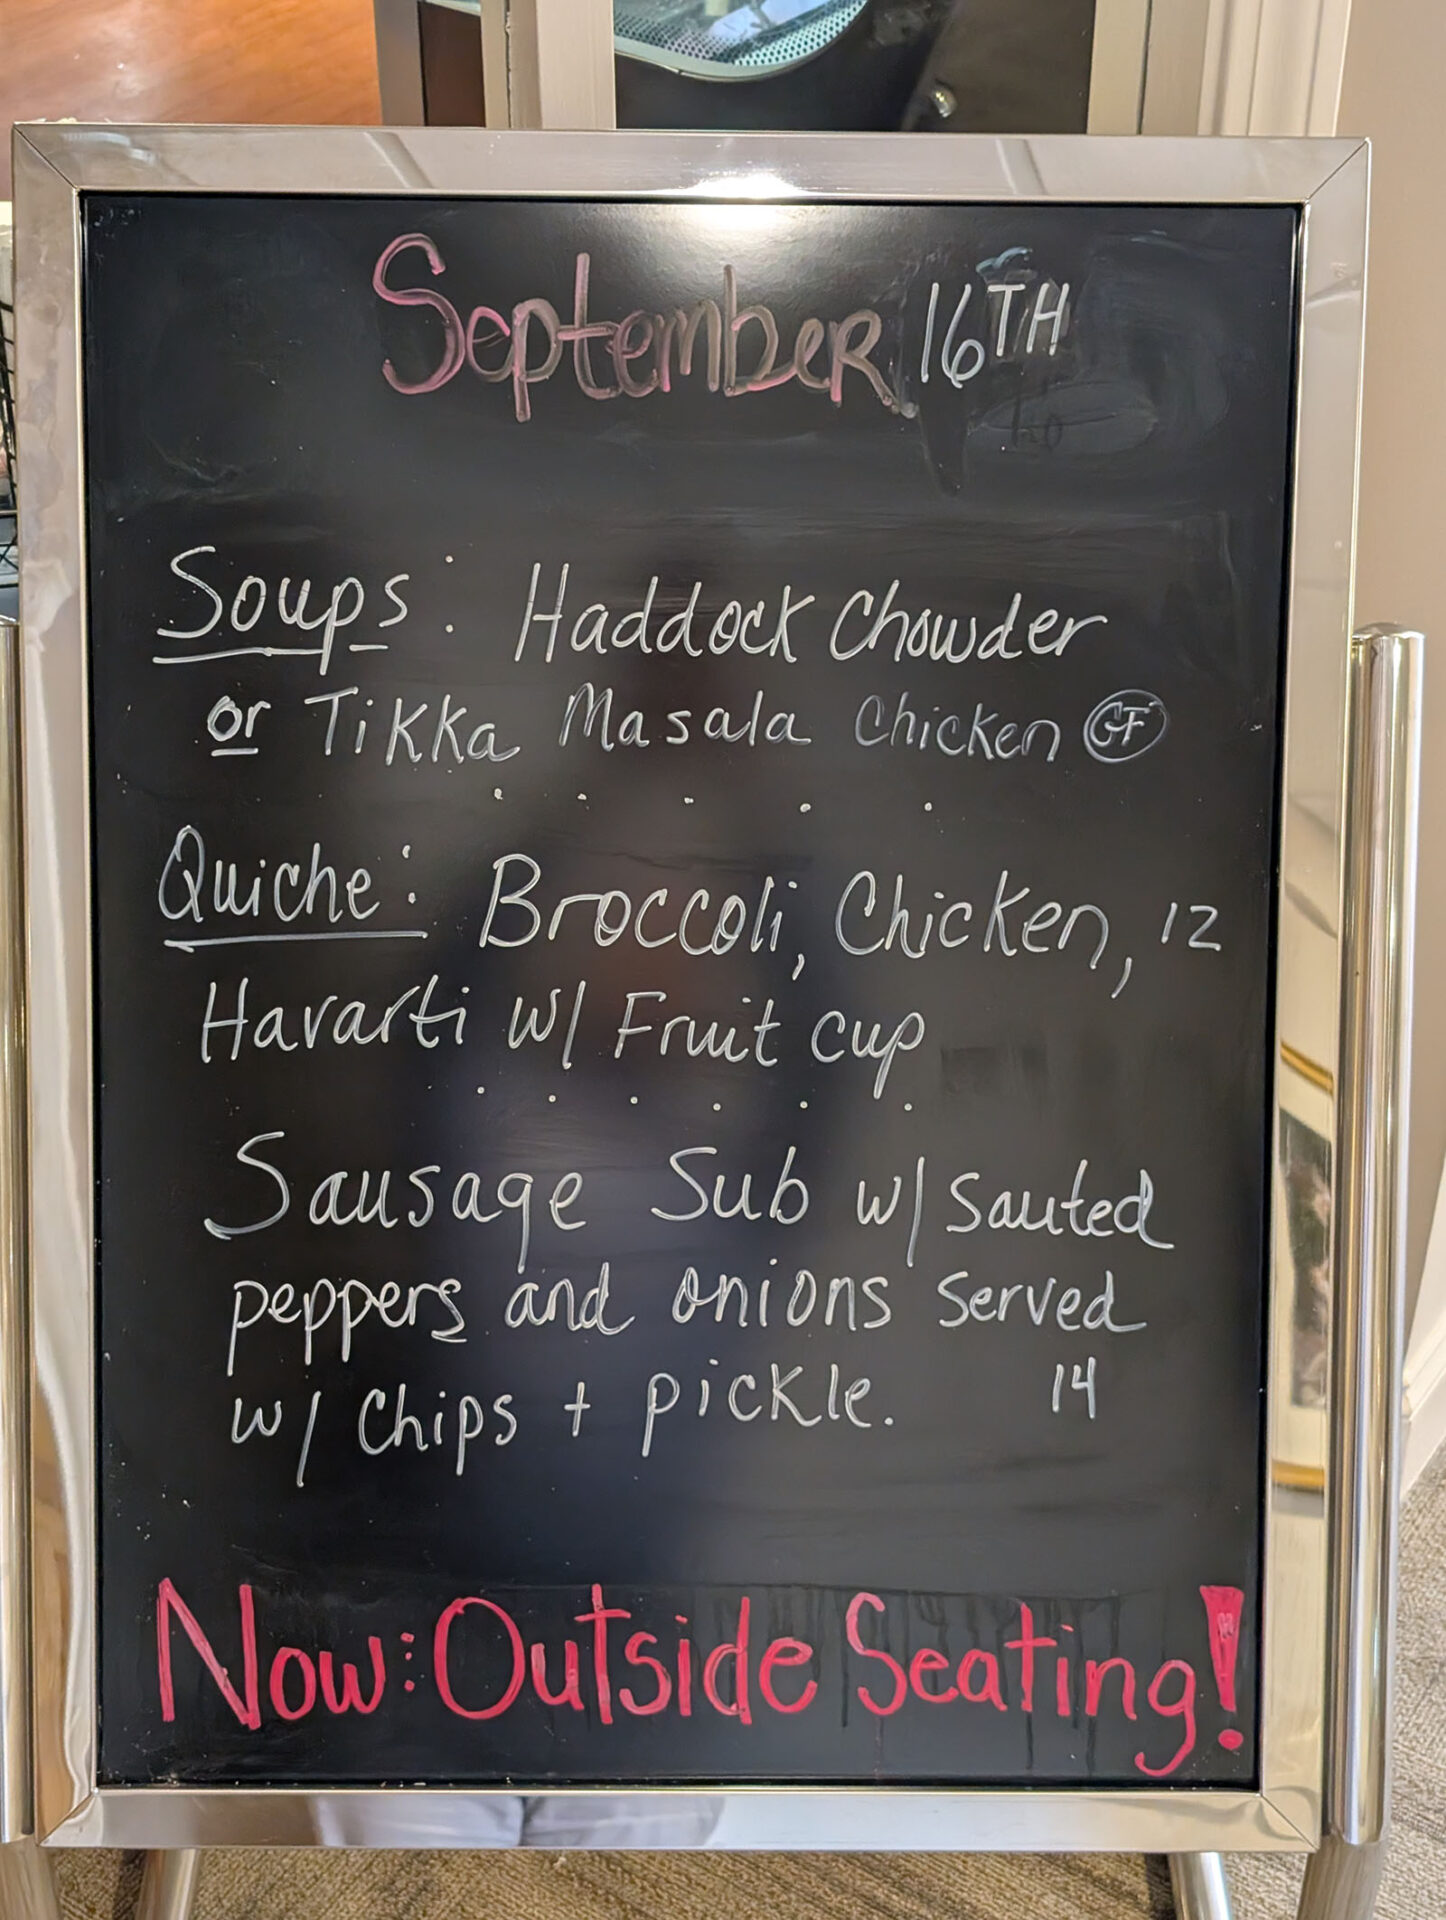 September 16TH
Soups: Haddock Chowder
or Tikka Masala Chicken GF
Quiche: Broccoli, Chicken, 12
Havarti w/ Fruit cup
Sausage Sub w/ Sauted
peppers and onions served
w/ Chips + pickle. 14
Now: Outside Seating!